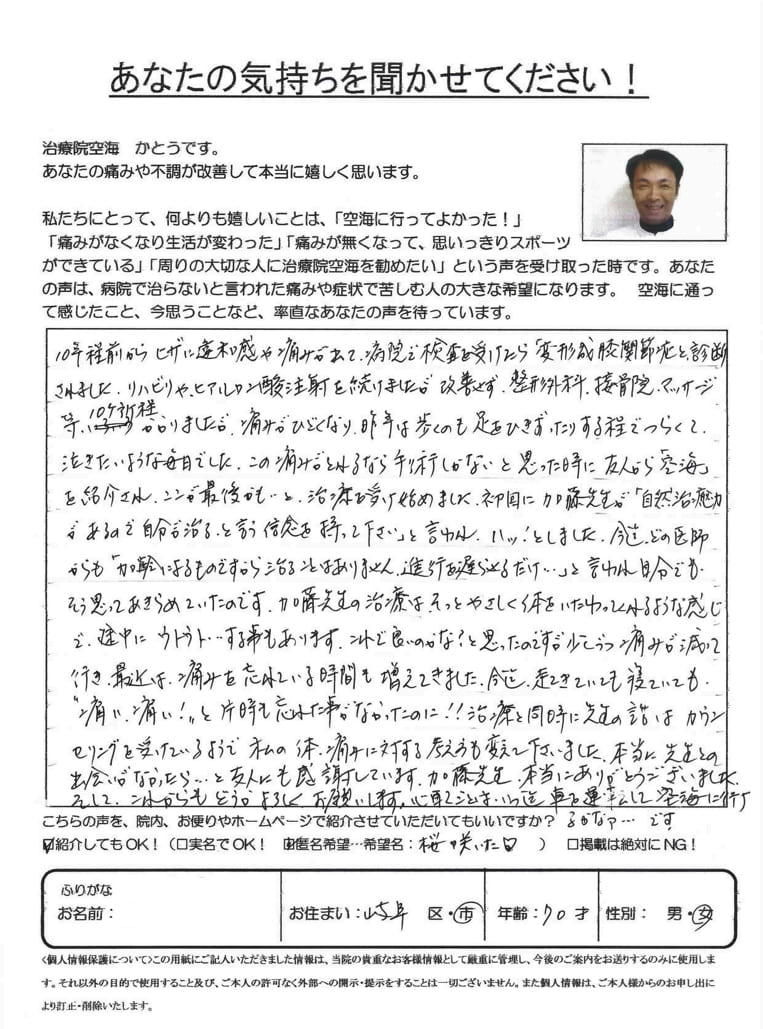 あなたの気持ちを聞かせてください！
治療院空海　かとうです。
あなたの痛みや不調が改善して本当に嬉しく思います。
私たちにとって、何よりも嬉しいことは、「空海に行ってよかった！」
「痛みがなくなり生活が変わった」「痛みが無くなって、思いっきりスポーツ
ができている」「周りの大切な人に治療院空海を勧めたい」という声を受け取った時です。あなた
の声は、病院で治らないと言われた痛みや症状で苦しむ人の大きな希望になります。　空海に通っ
て感じたこと、今思うことなど、率直なあなたの声を待っています。
10年程前からヒザに違和感や痛みが出て、病院で検査を受けたら「変形成膝関節症と診断
されました。リハビリや、ヒアルロン酸注射を続けましたが改善せず、整形外科、接骨院、マッサージ
等、10ヶ所程かかりましたが、痛みがひどくなり、昨年は歩くのも足をひきずったりする程でつらくて、
泣きたいような毎日でした。この痛みがとれるなら手術しかないと思った時に友人から「空海」
を紹介され、ココが最後かも…と、治療を受け始めました。初回に加藤先生が「自然治癒力
があるので自分で治る、と言う信念を持って下さい」と言われ、ハッ！としました。今迄、どの医師
からも「加齢によるものですから治ることはありません、進行を遅らせるだけ…」と言われ自分でも
そう思ってあきらめていたのです。加藤先生の治療はそっとやさしく体をいたわってくれるような感じ
で、途中にウトウト…する事もあります。これで良いのかな？と思ったのですが少しづつ痛みが減って
行き、最近は、痛みを忘れている時間も増えてきました。今迄、起きていても寝ていても、
“痛い、痛い！”と片時も忘れた事がなかったのに！！治療と同時に先生の話は カウン
セリングを受けているようで私の体、痛みに対する考え方も変えて下さいました。本当に先生との
出会いがなかったら…と友人にも感謝しています。加藤先生、本当にありがとうございました。
そして、これからもどうかよろしくお願いします。心配なことは、いつ迄 車を運転して空海に行け
るかなァ…です
こちらの声を、院内、お便りやホームページで紹介させていただいてもいいですか？
☑紹介してもOK！（□実名でOK！　☑匿名希望…希望名：桜咲いた日　）　□掲載は絶対にNG！
ふりがな
お名前：
お住まい：岐阜　区・市
年齢：70才
性別：　男・女
〈個人情報保護について〉この用紙にご記入いただきました情報は、当院の貴重なお客様情報として厳重に管理し、今後のご案内をお送りするのみに使用しま
す。それ以外の目的で使用すること及び、ご本人の許可なく外部への開示・提示をすることは一切ございません。また個人情報は、ご本人様からのお申し出に
より訂正・削除いたします。